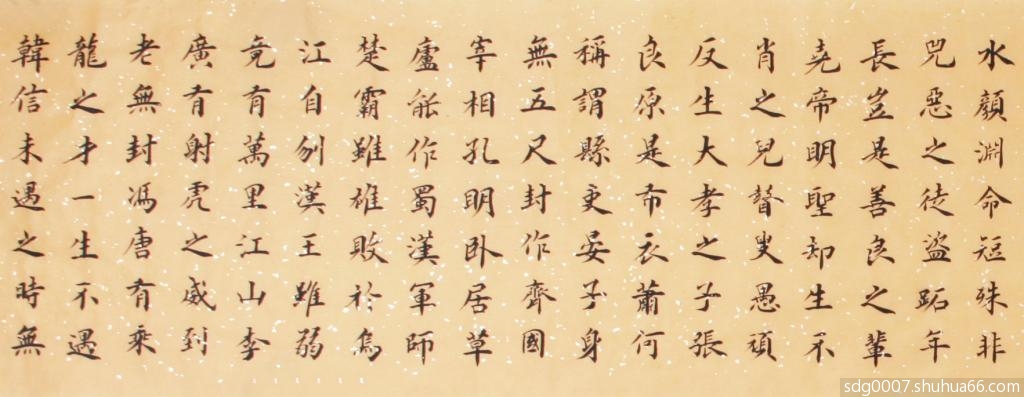 水顏淵命短殊非
兇惡之徒盜跖年
長豈是善良之輩
堯帝明聖却生不
肖之兒瞽叟愚頑
反生大孝之子張
良原是布衣蕭何
稱謂縣吏晏子身
無五尺封作齊國
宰相孔明卧居草
廬能作蜀漢軍師
楚霸雖雄敗於烏
江自刎漢王雖弱
竟有萬里江山李
廣有射虎之威到
老無封馮唐有乘
龍之才一生不遇
韓信未遇之時無
sdg0007.shuhua66.com